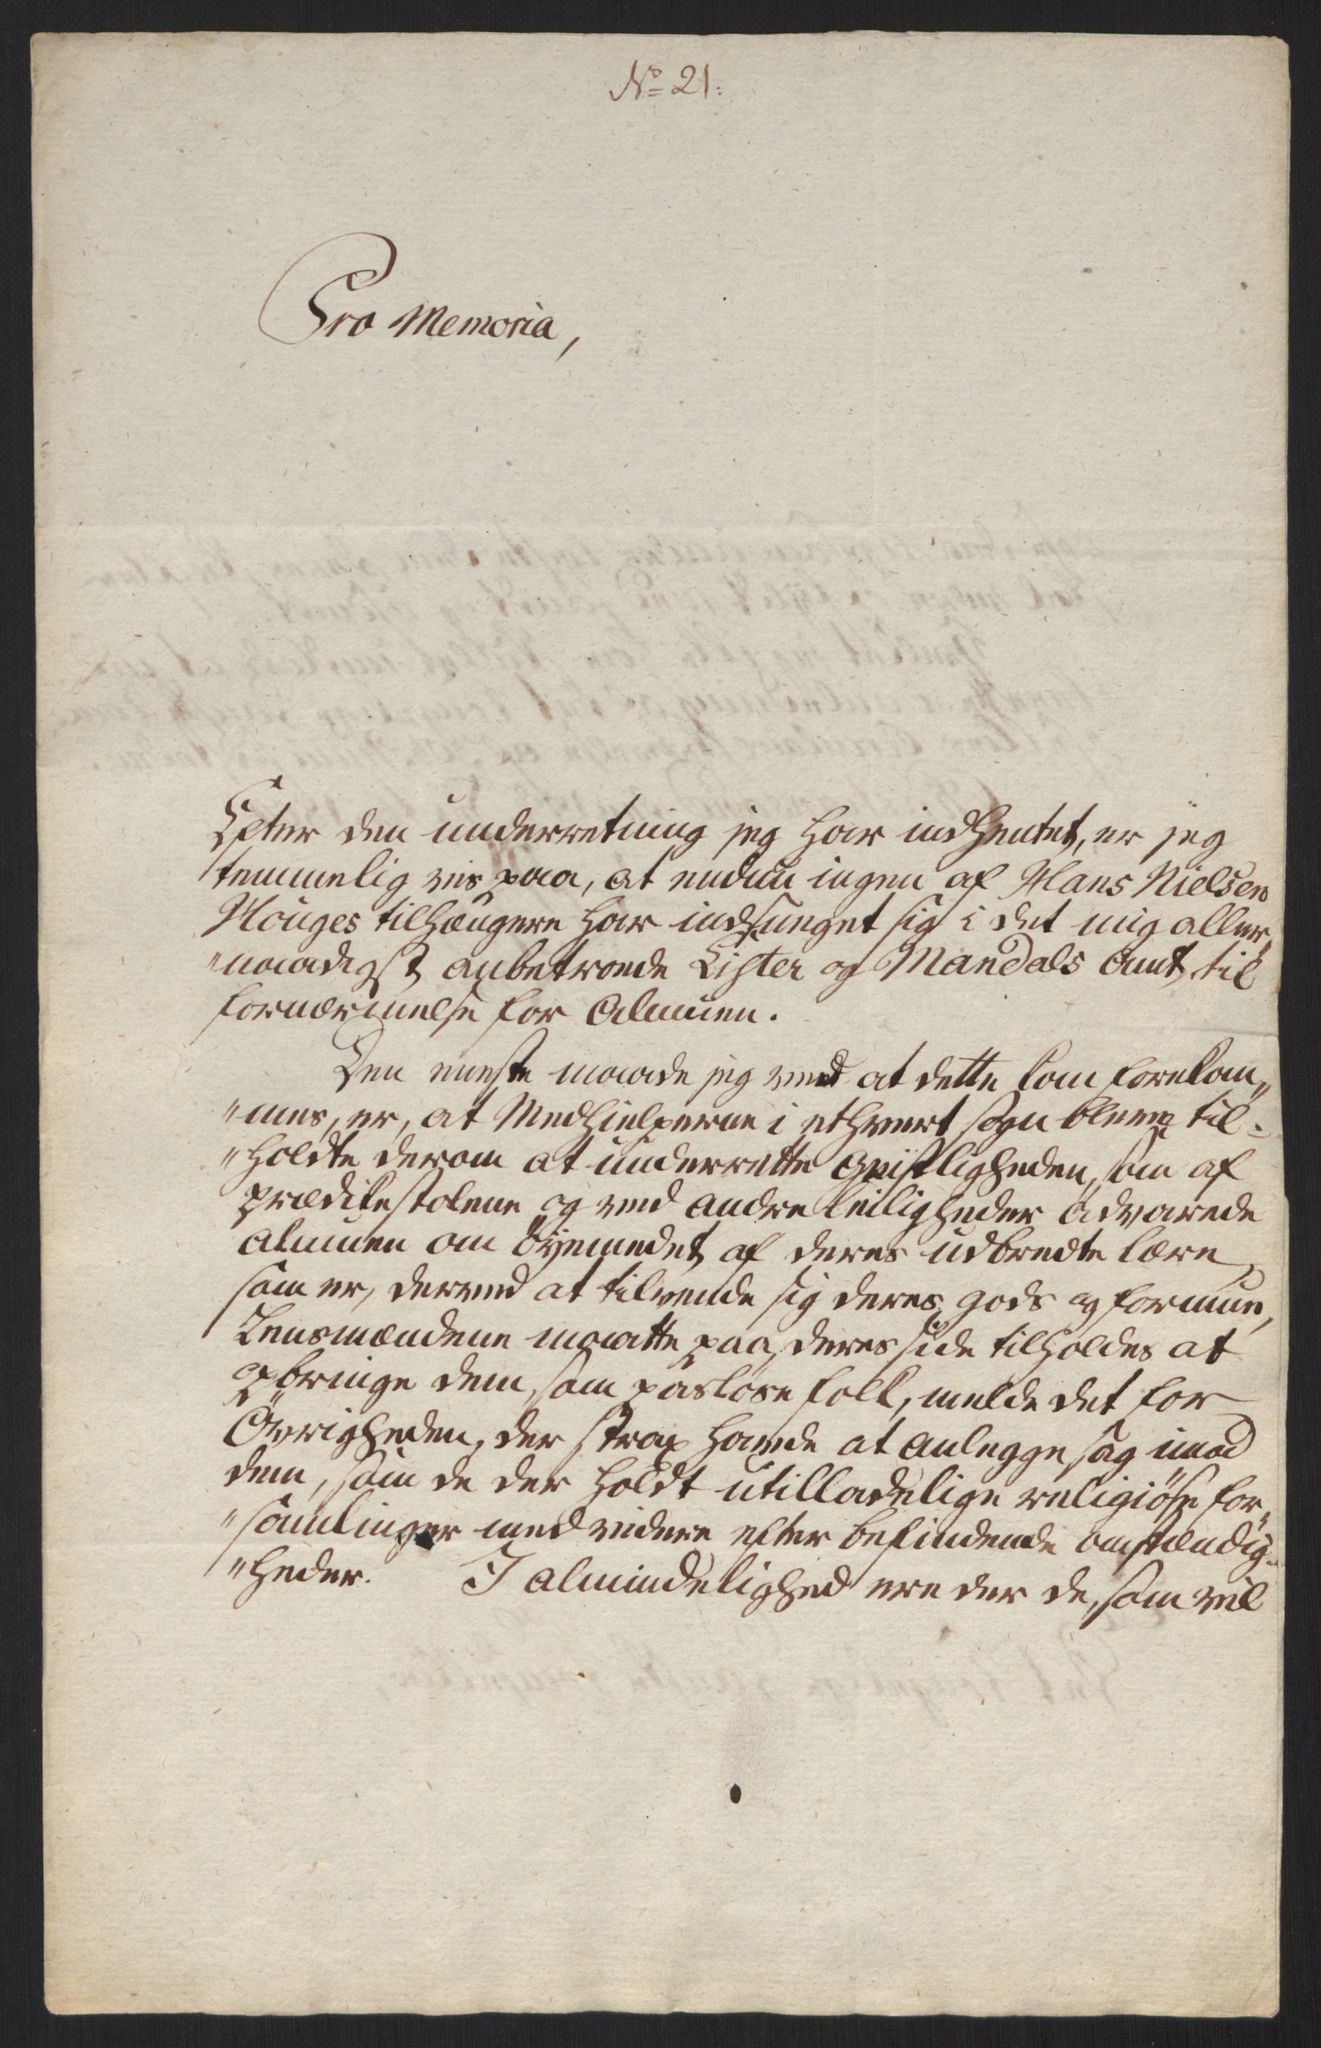 No 21.
Pro Memoria,
Efter den underretning jeg har indhentet, er jeg
temmelig vis paa, at endnu ingen af Hans Nielsen
Houges tilhængere har indsneget sig i det mig aller„
„naadigst anbetroede Lister og Mandals Amt, til
fornærmelse for Almuen.
Den eneste maade jeg veed at dette kan forekom„
„mes, er, at Medhielperne i ethvert sogn bleve til„
„holdte derom at underrette Geistligheden, som af
prædikestolene og ved andre leiligheder advarede
Almuen om Øyemedet af deres udbredte lære,
som er, derved at tilvende sig deres gods og formue,
Lensmændene maatte paa deres side tilholdes at
opbringe dem, som pasløse folk, melde det for
Øvrigheden, der strax havde at anlegge sag imod
dem, som de der holdt utilladelige religiøse for„
„samlinger med videre efter befindende omstændig„
„heder. I almindelighed ere der de, som vil